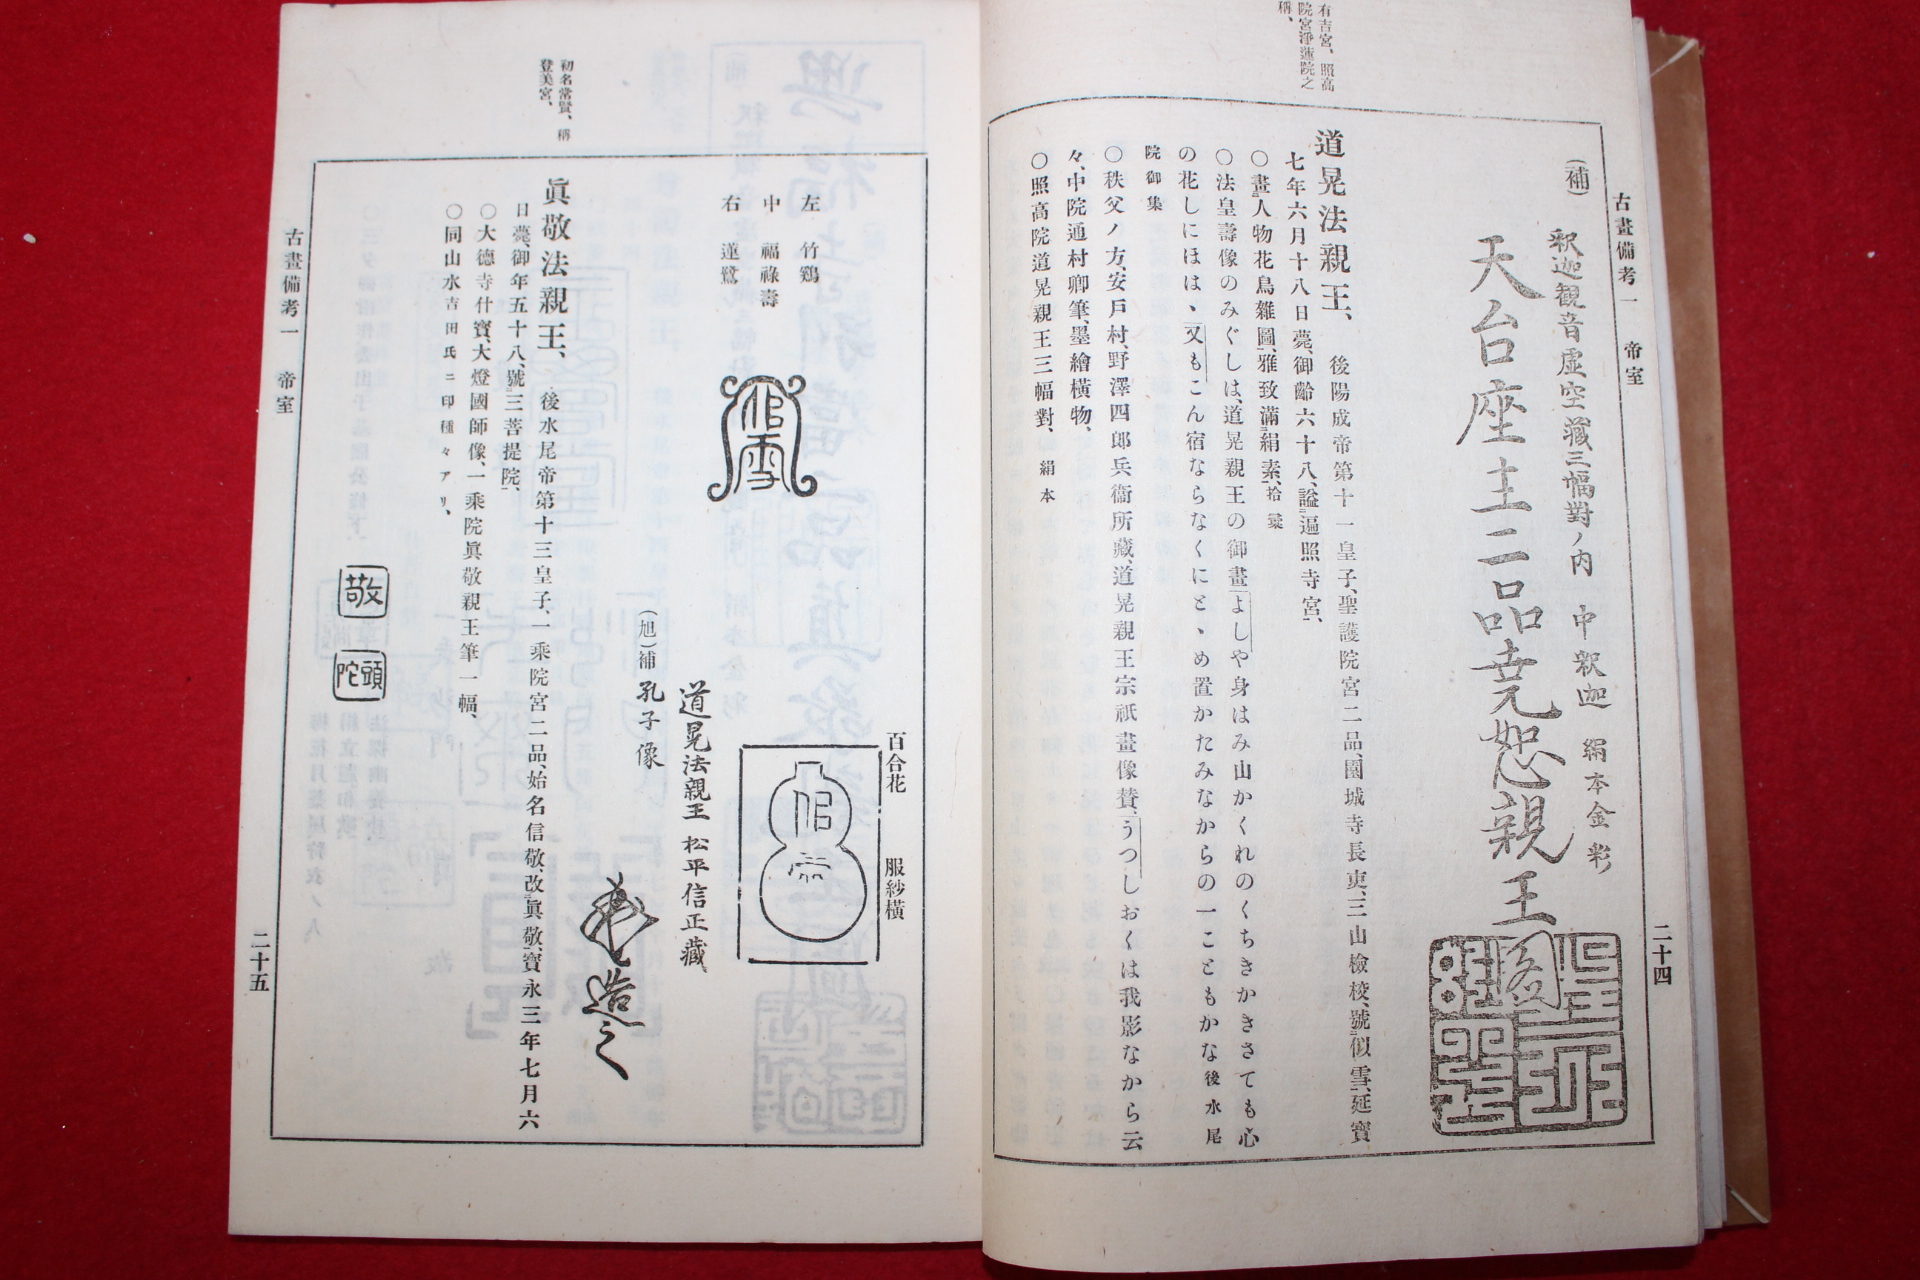 古畫備考一　帝室
二十四
有吉宮、照高
院宮淨蓮院之
稱、
(補)
釈迦観音虚空藏三幅對ノ内　中釈迦　絹本金彩
天台座主二品尭恕親王
道晃法親王、後陽成帝第十一皇子、聖護院宮二品、園城寺長吏、三山檢校、號似雪、延寶
七年六月十八日薨、御齡六十八、謚遍照寺宮、
〇畫人物花鳥雜圖、雅致滿絹素、拾彙
〇法皇壽像のみぐしは、道晃親王の御畫よしや身はみ山かくれのくちきかきさても心
の花しにほはゝ又もこん宿ならなくにとゝめ置かたみなからの一こともかな後水尾
院御集
〇秩父ノ方、安戸村、野澤四郎兵衞所藏、道晃親王宗祇畫像賛、うつしおくは我影なから云
々、中院通村卿筆、墨繪橫物、
〇照高院道晃親王三幅對、絹本
左　竹鷄
中　福祿壽
右　蓮鷺
百合花　服紗橫
道晃法親王　松平信正藏
(旭)補　孔子像
造之
初名常賢、稱
登美宮、
眞敬法親王、後水尾帝第十三皇子、一乘院宮二品、始名信敬、改眞敬、寶永三年七月六
日薨、御年五十八、號三菩提院、
〇大德寺什寶、大燈國師像、一乘院眞敬親王筆一幅、
〇同山水吉田氏ニ印種々アリ、
敬
頭陀
古畫備考一　帝室
二十五